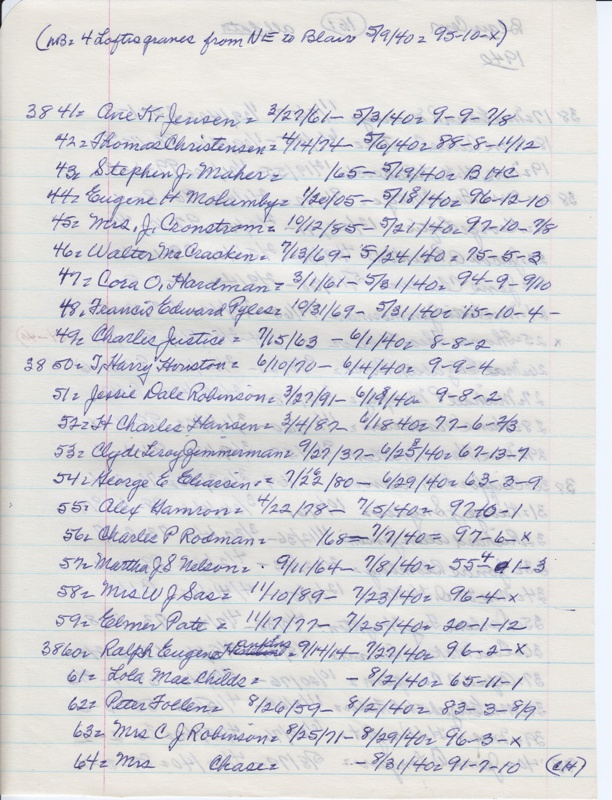 (NB= 4 Loftis graves from NE to Blair 5/9/40= 95-10-x)
38 41= Ove K. Jensen = 3/27/61 - 5/3/40= 9-9-7/8
42= Thomas Christensen= 4/14/74 - 5/6/40= 88-8-11/12
43= Stephen J. Maher= 165- 5/19/40= BHC
44= Eugene H Molumby= 1/20/05 - 5/18/40= 96-12-10
45= Mrs. J. Cronstrom= 10/12/85 - 5/21/40= 97-10-7/8
46= Walter McCracken= 7/13/69 - 5/24/40= 75-5-3
47= Cora O. Hardman= 3/1/61 - 5/31/40= 94-9-9/10
48, Francis Edward Pyles= 10/31/69 - 5/31/40= 15-10-4-
49= Charles Justice= 7/15/63 - 6/1/40= 8-8-2
38 50= T. Harry Houston= 6/10/70 - 6/4/40= 9-9-4
51= Jessie Dale Robinson= 3/27/91 - 9-8-2
52= H Charles Hansen= 3/4/87 - 6/18/40= 77-6-2/3
53= Clyde Leroy Zimmerman= 9/27/37 - 67-13-7
54= George E. 6/29/40= 63-3-9
55= Alex Hamron= 4/22/78 - 7/5/40=
56= Charles P Rodman= 1/68= 7/7/40= 97-6-x
57= Martha J. S. Nelson= 9/11/64 - 7/8/40=
58= Mrs W J Sas= 11/10/89 - 7/23/40= 96-4-x
59= Elmer Pate= 11/17/77 - 7/25/40= 20-1-12
3860= Ralph Eugene Hanking= 9/14/14 - 7/27/40= 96-2-x
61= Lola Mae Childs= - 8/2/40= 65-11-1
62= Peter Follen= 8/26/59 - 8/2/40= 83-3-8/9
63= Mrs C J Robinson= 8/25/71 - 8/29/40= 96-3-x
64= Mrs Chase= - 8/31/40= 91-7-10 (CH)